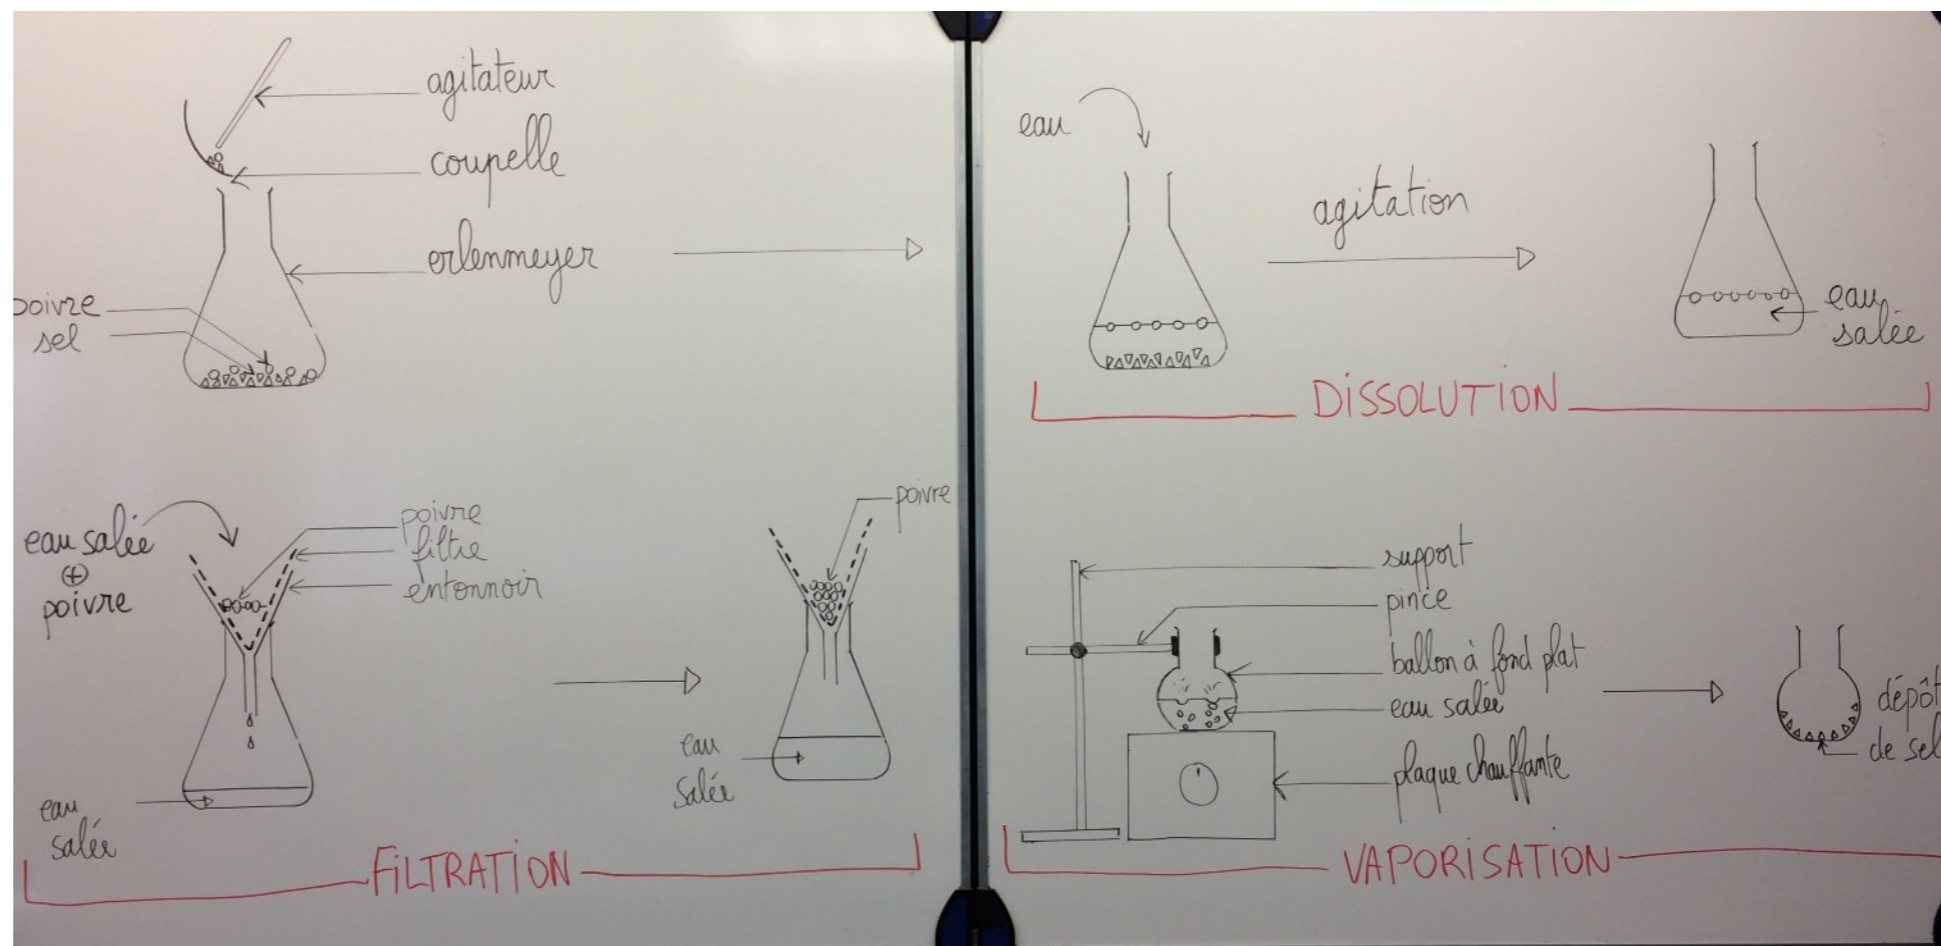 agitateur
coupelle
erlenmeyer
poivre
sel
eau
agitation
eau
salée
DISSOLUTION
eau salée
+
poivre
poivre
filtre
entonnoir
eau
salée
poivre
eau
salée
FILTRATION
support
pince
ballon à fond plat
eau salée
plaque chauffante
dépôt
de sel
VAPORISATION